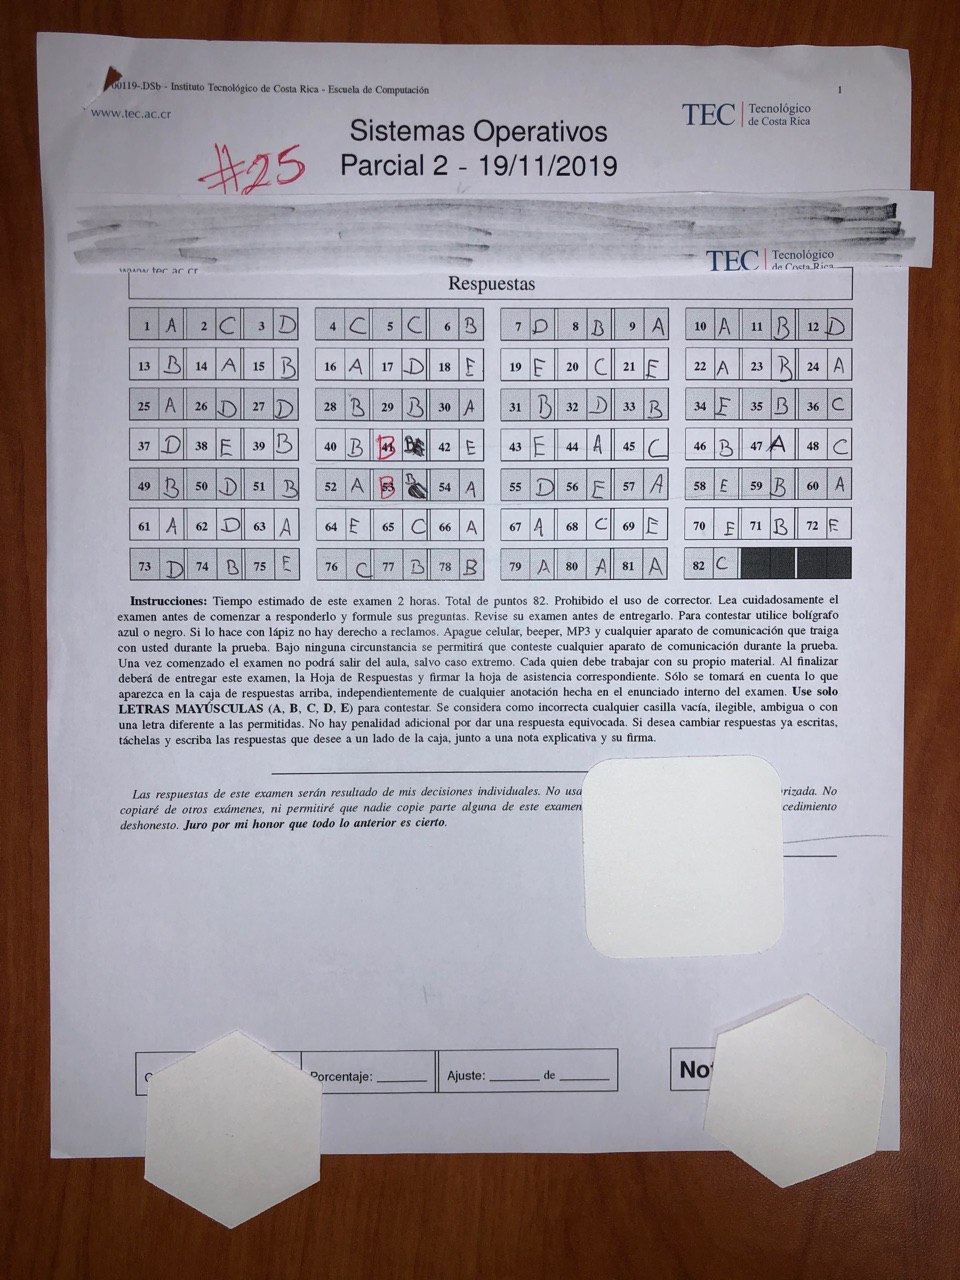 00119-.DSb - Instituto Tecnológico de Costa Rica - Escuela de Computación 1
www.tec.ac.cr
TEC Tecnológico de Costa Rica
Sistemas Operativos
Parcial 2 - 19/11/2019
#25
www.tec.ac.cr
TEC Tecnológico de Costa Rica
Respuestas
1 A 2 C 3 D 4 C 5 C 6 B 7 D 8 B 9 A 10 A 11 B 12 D
13 B 14 A 15 B 16 A 17 D 18 E 19 E 20 C 21 E 22 A 23 B 24 A
25 A 26 D 27 D 28 B 29 B 30 A 31 B 32 D 33 B 34 E 35 B 36 C
37 D 38 E 39 B 40 B 41 B B 42 E 43 E 44 A 45 C 46 B 47 A 48 C
49 B 50 D 51 B 52 A 53 B B 54 A 55 D 56 E 57 A 58 E 59 B 60 A
61 A 62 D 63 A 64 E 65 C 66 A 67 A 68 C 69 E 70 E 71 B 72 E
73 D 74 B 75 E 76 C 77 B 78 B 79 A 80 A 81 A 82 C
Instrucciones: Tiempo estimado de este examen 2 horas. Total de puntos 82. Prohibido el uso de corrector. Lea cuidadosamente el
examen antes de comenzar a responderlo y formule sus preguntas. Revise su examen antes de entregarlo. Para contestar utilice bolígrafo
azul o negro. Si lo hace con lápiz no hay derecho a reclamos. Apague celular, beeper, MP3 y cualquier aparato de comunicación que traiga
con usted durante la prueba. Bajo ninguna circunstancia se permitirá que conteste cualquier aparato de comunicación durante la prueba.
Una vez comenzado el examen no podrá salir del aula, salvo caso extremo. Cada quien debe trabajar con su propio material. Al finalizar
deberá de entregar este examen, la Hoja de Respuestas y firmar la hoja de asistencia correspondiente. Sólo se tomará en cuenta lo que
aparezca en la caja de respuestas arriba, independientemente de cualquier anotación hecha en el enunciado interno del examen. Use solo
LETRAS MAYÚSCULAS (A, B, C, D, E) para contestar. Se considera como incorrecta cualquier casilla vacía, ilegible, ambigua o con
una letra diferente a las permitidas. No hay penalidad adicional por dar una respuesta equivocada. Si desea cambiar respuestas ya escritas,
táchelas y escriba las respuestas que desee a un lado de la caja, junto a una nota explicativa y su firma.
Las respuestas de este examen serán resultado de mis decisiones individuales. No usa rizada. No
copiaré de otros exámenes, ni permitiré que nadie copie parte alguna de este examen cedimiento
deshonesto. Juro por mi honor que todo lo anterior es cierto.
Porcentaje: Ajuste: de No